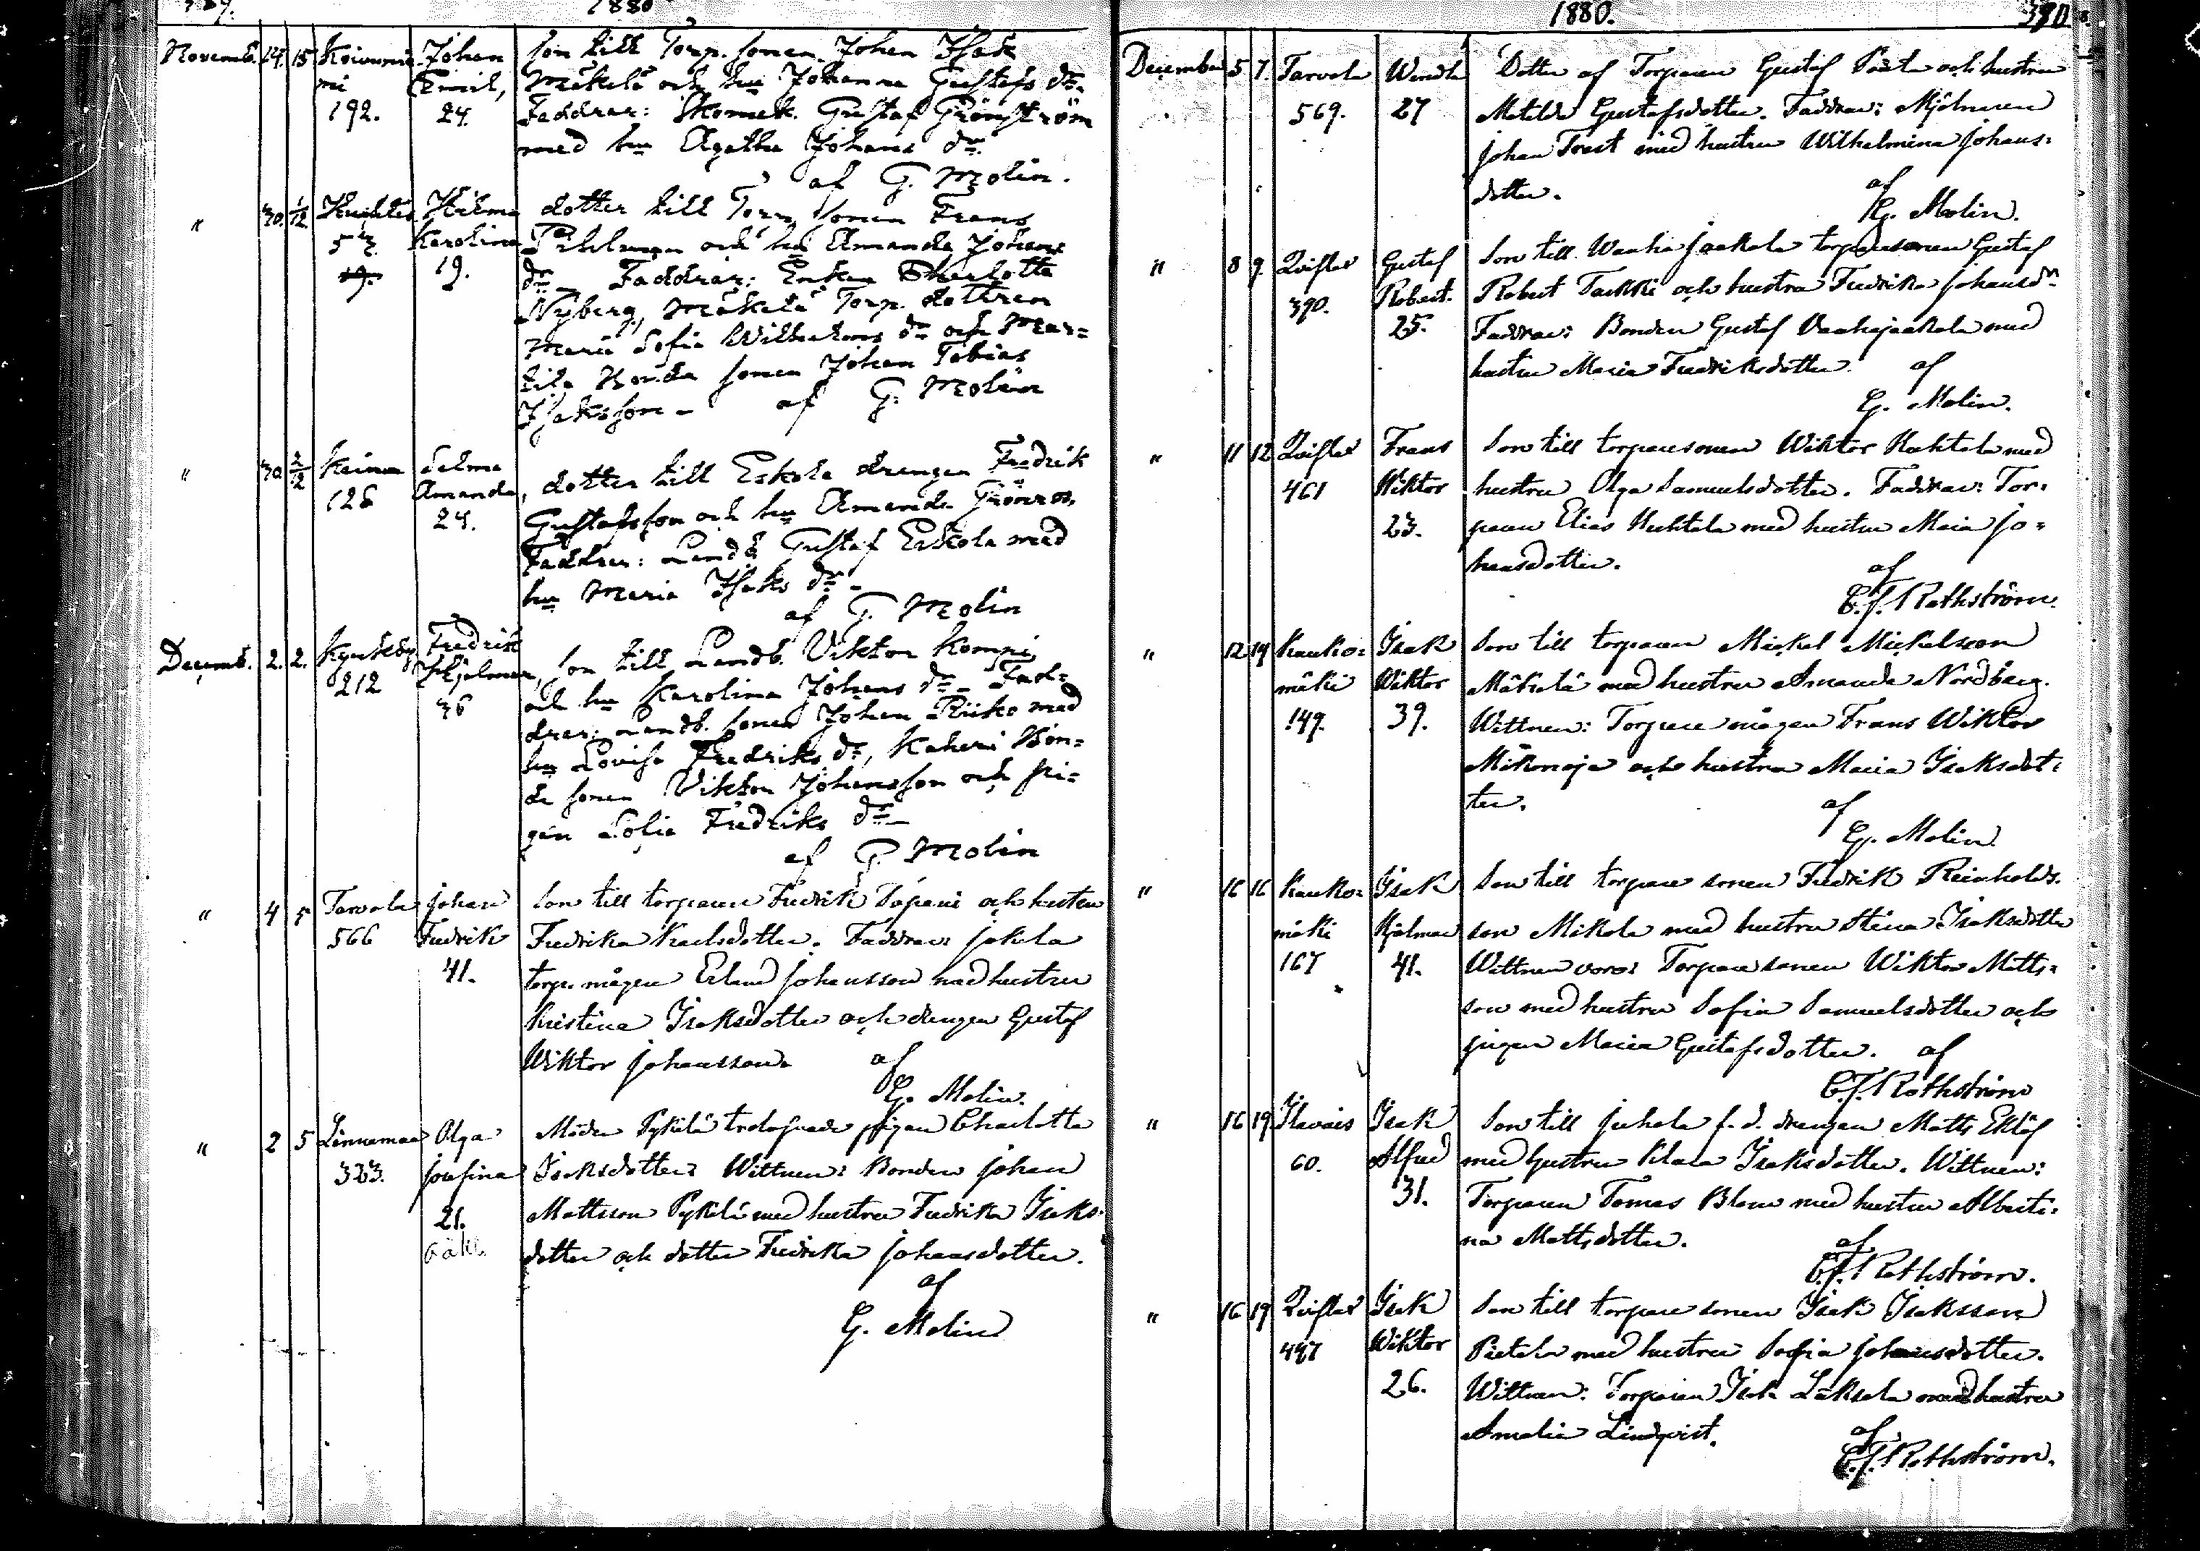 1880
Novemb. 14. 15 Koivunie Johan son till Torp. sonen Johan Isak
mi Emil, Mäkelä och hu Johanna Gustafs dr.
192. 24. Faddrar: Skomak. Gustaf Grönström
med hu Agatha Johans dr.
af G. Molin.
" 30. 1/12 Hilma dotter till Torp. sonen Frans
Karolina och hu Amanda Johans
19. dr Faddrar: Enkan Charlotta
Nyberg, Mäkelä Torp. dottren
Maria Sofia Wilhelms dr och Mar=
tila Bonde sonen Johan Tobias
Isaksson - af G. Molin
" 30 2/12 Keima Selma
126 Amanda, dotter till Eskola drengen Fredrik
24. Gustafsson och hu Amanda Grönros.
Faddrar: Landb Gustaf Eskola med
hu Maria Isaks dr -
af G. Molin
Decemb. 2. 2. Fredrik
212 Hjelmar, son till Landb. Viktor Kompi
36 och hu Karolina Johans dr - Fad=
drar: Landb. sonen Johan Piiko med
hu Lovisa Fredriks dr, Kaheri Bon=
de sonen Viktor Johansson och pi=
gan Sofia Fredriks dr -
af G Molin
" 4 5 Tarvola Johan Son till torparen Fredrik Tapani och hustru
566 Fredrik Fredrika Karlsdotter. Faddrar: Jokela
41. torp. mågen Erland Johansson med hustru
Kristina Isaksdotter och drengen Gustaf
Wiktor Johansson. af
G. Molin.
" 2 5 Linnamaa Olga Moder Pykälä trolofvade pigan Charlotta
323. Josefina Isaksdotter: Wittnen: Bonden Johan
21. Mattsson Pykälä med hustru Fredrika Isaks-
oäkt. dotter och dotter Fredrika Johansdotter.
af
G. Molin
1880. 390
December 5 7. Tarvola Wendla Dotter af Torparen Gustaf och hustru
569. 27 Matilda Gustafsdotter. Faddrar: Mjölnaren
Johan Trast med hustru Wilhelmina Johans-
dotter. af
G. Molin.
" 8 9 Qviflax Gustaf Son till Waahajaakola torparesonen Gustaf
390. Robert. Robert Takki och hustru Fredrika Johansdr
25. Faddrar: Bonden Gustaf Vaahajaakola med
hustru Maria Fredriksdotter. af
G. Molin.
" 11 12 Qviflax Frans Son till torparesonen Wiktor Huhtala med
461 Wiktor hustru Olga Samuelsdotter. Faddrar: Tor-
23. paren Elias Huhtala med hustru Maria Jo=
hansdotter. af
C.F. Rothström.
" 12 19 Kauko= Isak Son till torparen Mickel Mickelsson
mäki Wiktor Mäkelä med hustru Amanda Nordberg.
149. 39. Wittnen: Torpare mågen Frans Wiktor
och hustru Maria Isaksdot-
ter. af
G. Molin.
" 16 16 Kauko= Isak Son till torpare sonen Fredrik Reinholds-
mäki Hjalmar son Mikola med hustru Stina Isaksdotter
167 41. Wittnen voro: Torpare sonen Wiktor Matts-
son med hustru Sofia Samuelsdotter och
pigan Maria Gustafsdotter. af
C.F. Rothström
" 16 19 Ilvais Isak Son till Juhola f.d. drengen Matts Eklöf
60. Alfred med hustru Klara Isaksdotter. Wittnen:
31. Torparen Tomas Blom med hustru Alberti-
na Mattsdotter. af
C.F. Rothström.
" 16 19 Qviflax Isak Son till torpare sonen Isak Isaksson
447 Wiktor Pietola med hustru Sofia Johansdotter.
26. Wittnen: Torparen Isak med hustru
Amalia Lindqvist. af
C.F. Rothström.